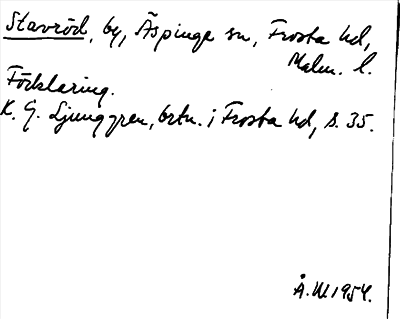 Stavröd, by, Äspinge sn, Frosta hd,
Malm. l.
Förklaring.
K. G. Ljunggren, ortn. i Frosta hd, s. 35.
Å. W. 1954.